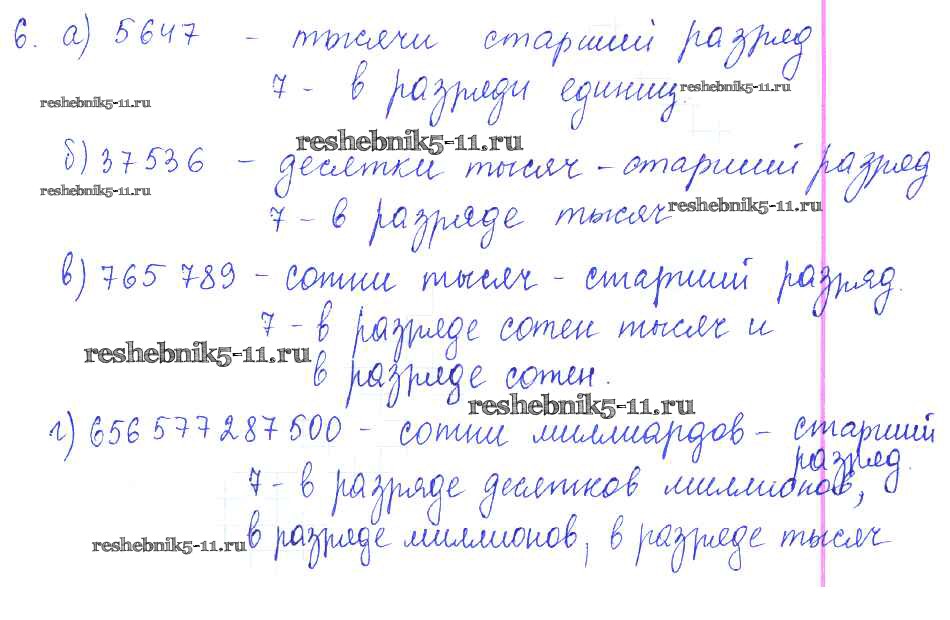 6. а) 5647 - тысячи старший разряд
7 - в разряди единиц. reshebnik5-11.ru
reshebnik5-11.ru
reshebnik5-11.ru
б) 37536 - десятки тысяч - старший разряд
reshebnik5-11.ru
7 - в разряде тысяч reshebnik5-11.ru
в) 765 789 - сотни тысяч - старший разряд.
7 - в разряде сотен тысяч и
reshebnik5-11.ru
в разряде сотен.
reshebnik5-11.ru
г) 656 577 287 500 - сотни миллиардов - старший
разряд.
7 - в разряде десятков миллионов,
reshebnik5-11.ru в разряде миллионов, в разряде тысяч